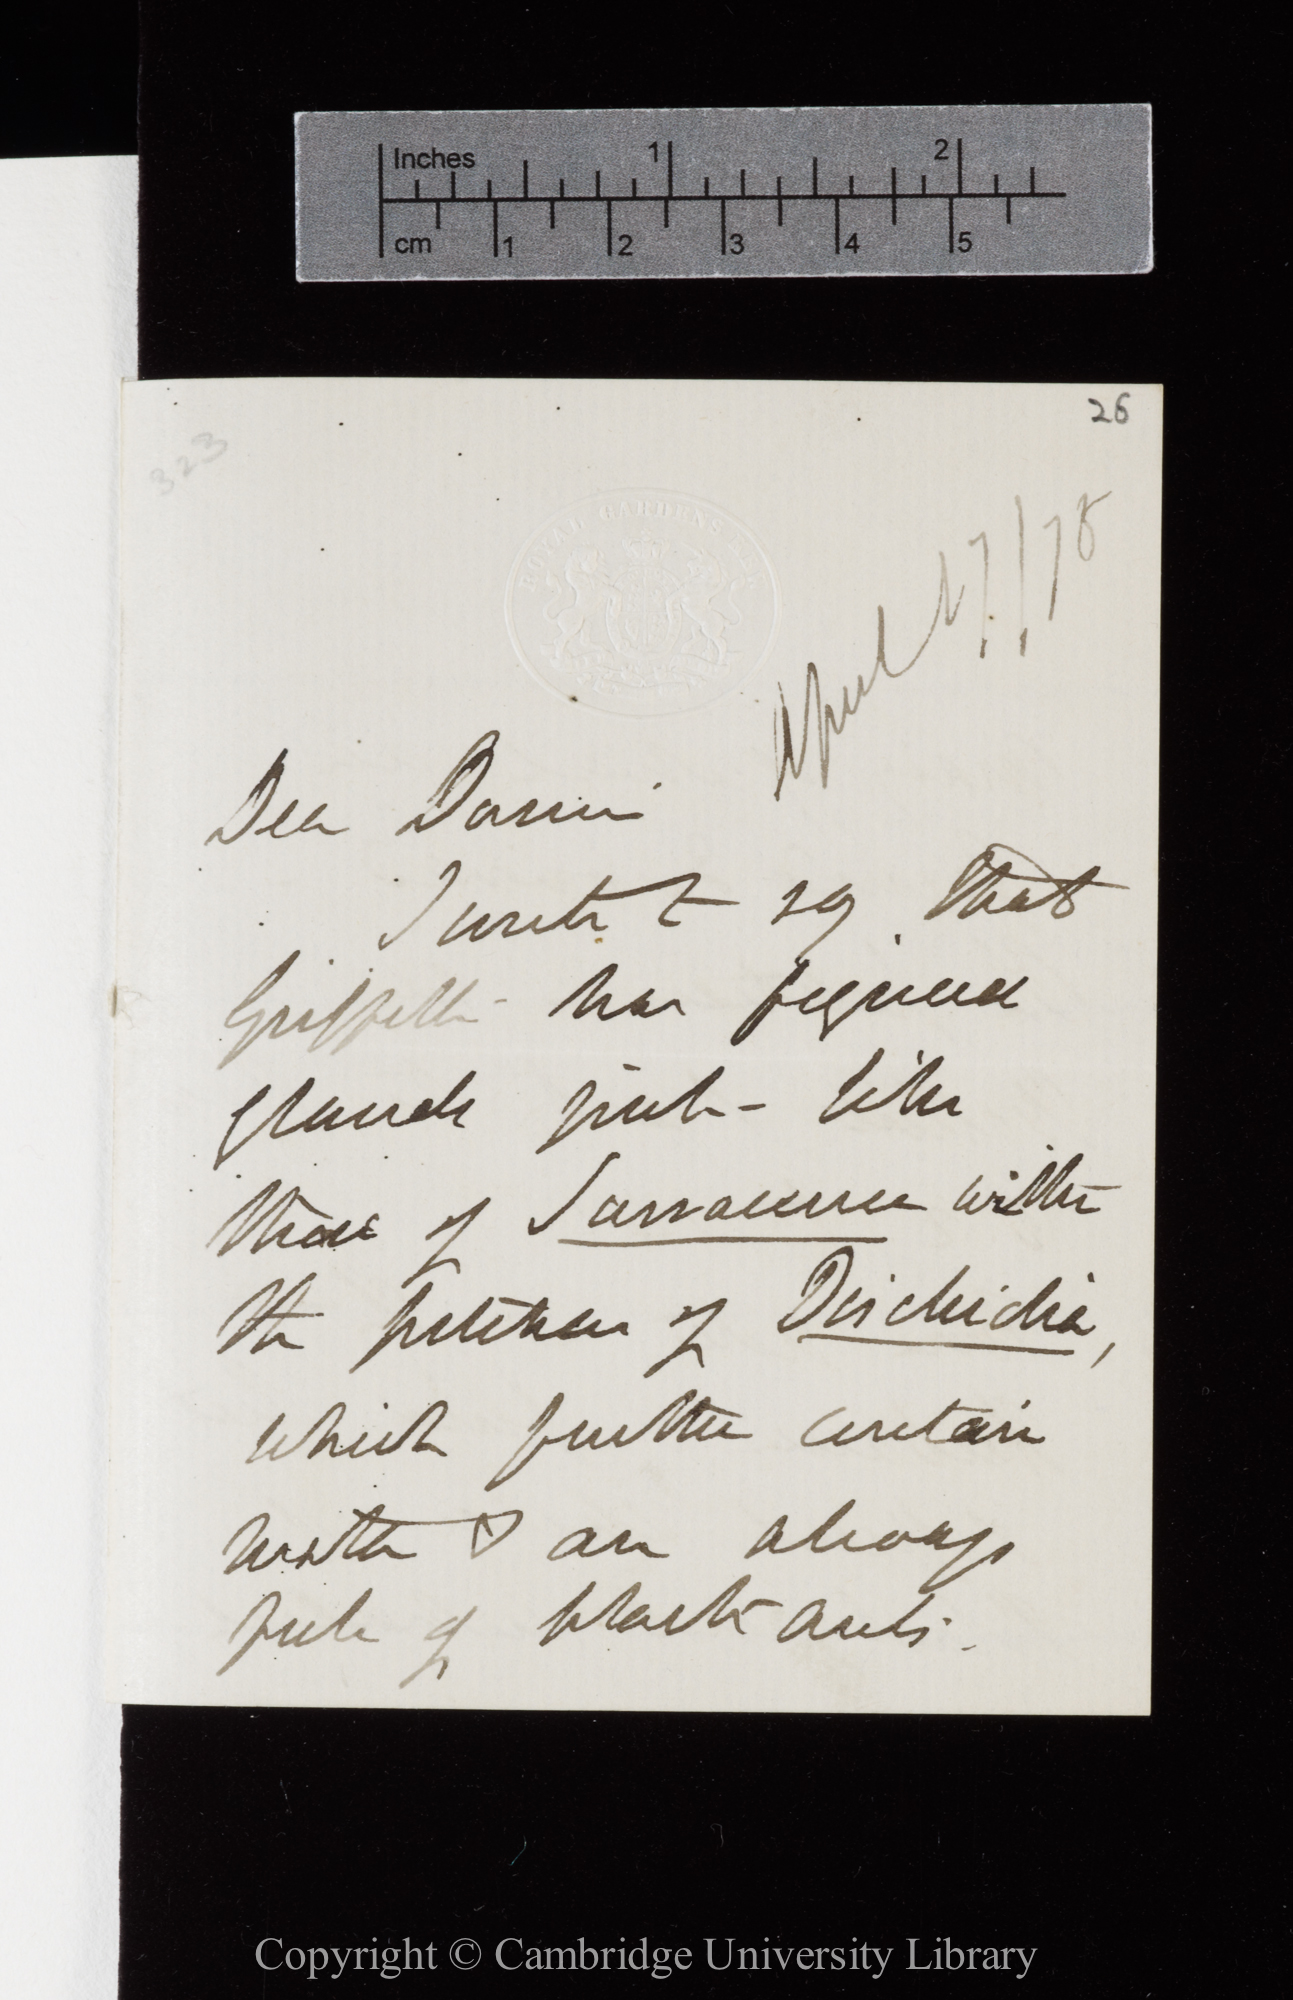 Inches 1 2
cm 1 2 3 4 5
26
323
ROYAL GARDENS KEW
April 27/78
Dear Darwin
I write to say that
Griffith has figured
glands just like
those of Sarracenia within
the pitchers of Dischidia,
which further contain
water & are always
full of black ants.
Copyright © Cambridge University Library